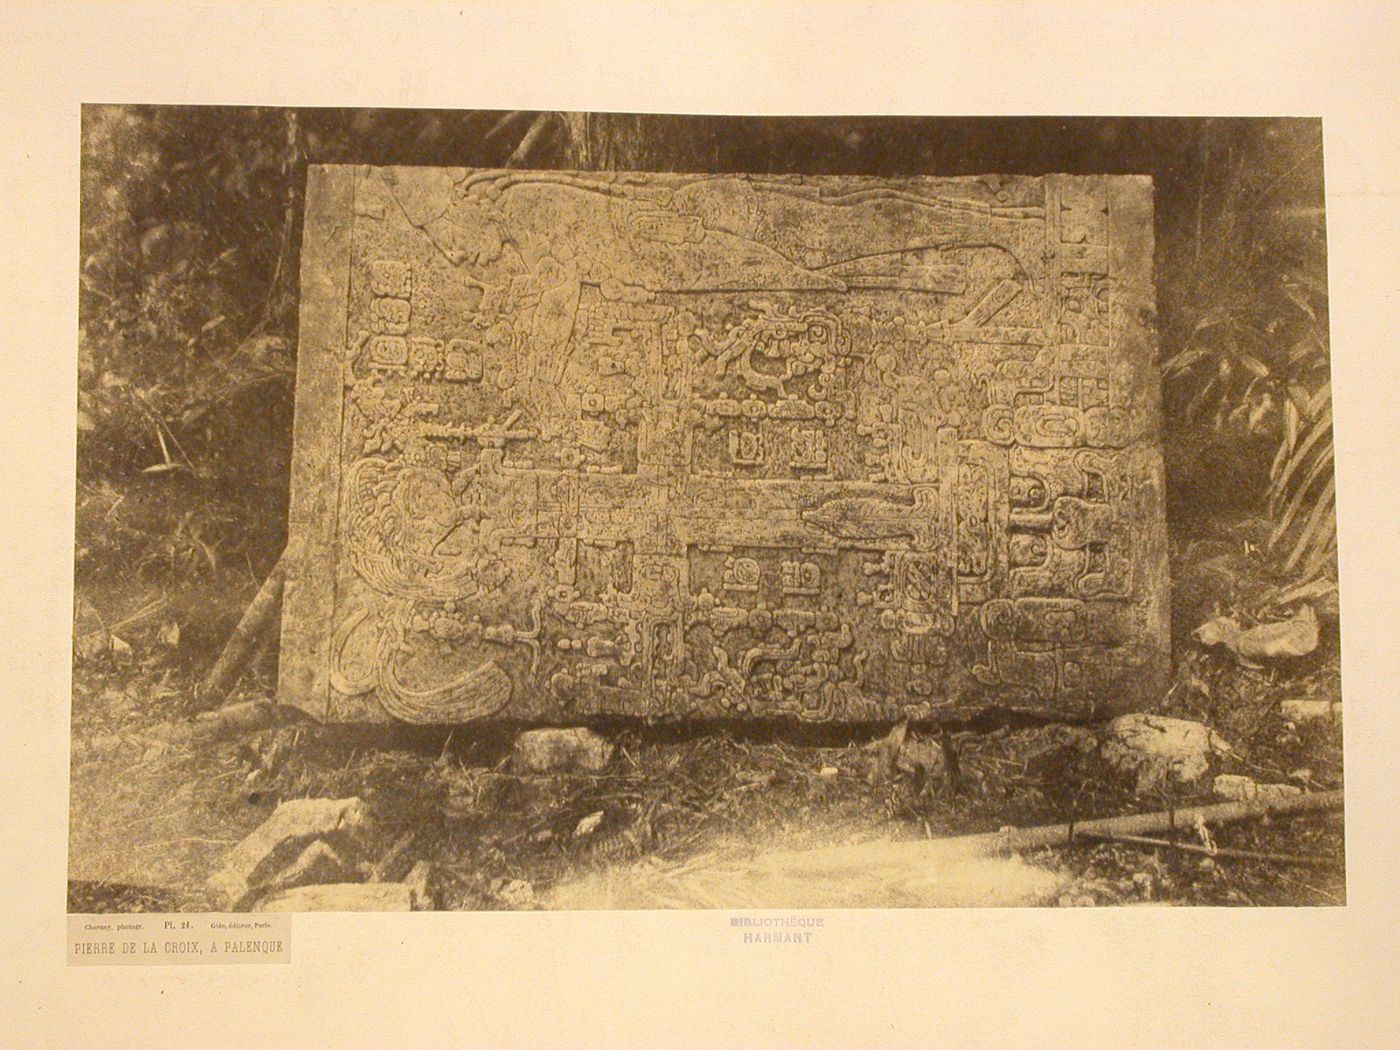 Charnay, photogr. Pl. 21. Gide, éditeur, Paris.
PIERRE DE LA CROIX, A PALENQUE
BIBLIOTHÈQUE
HARMANT